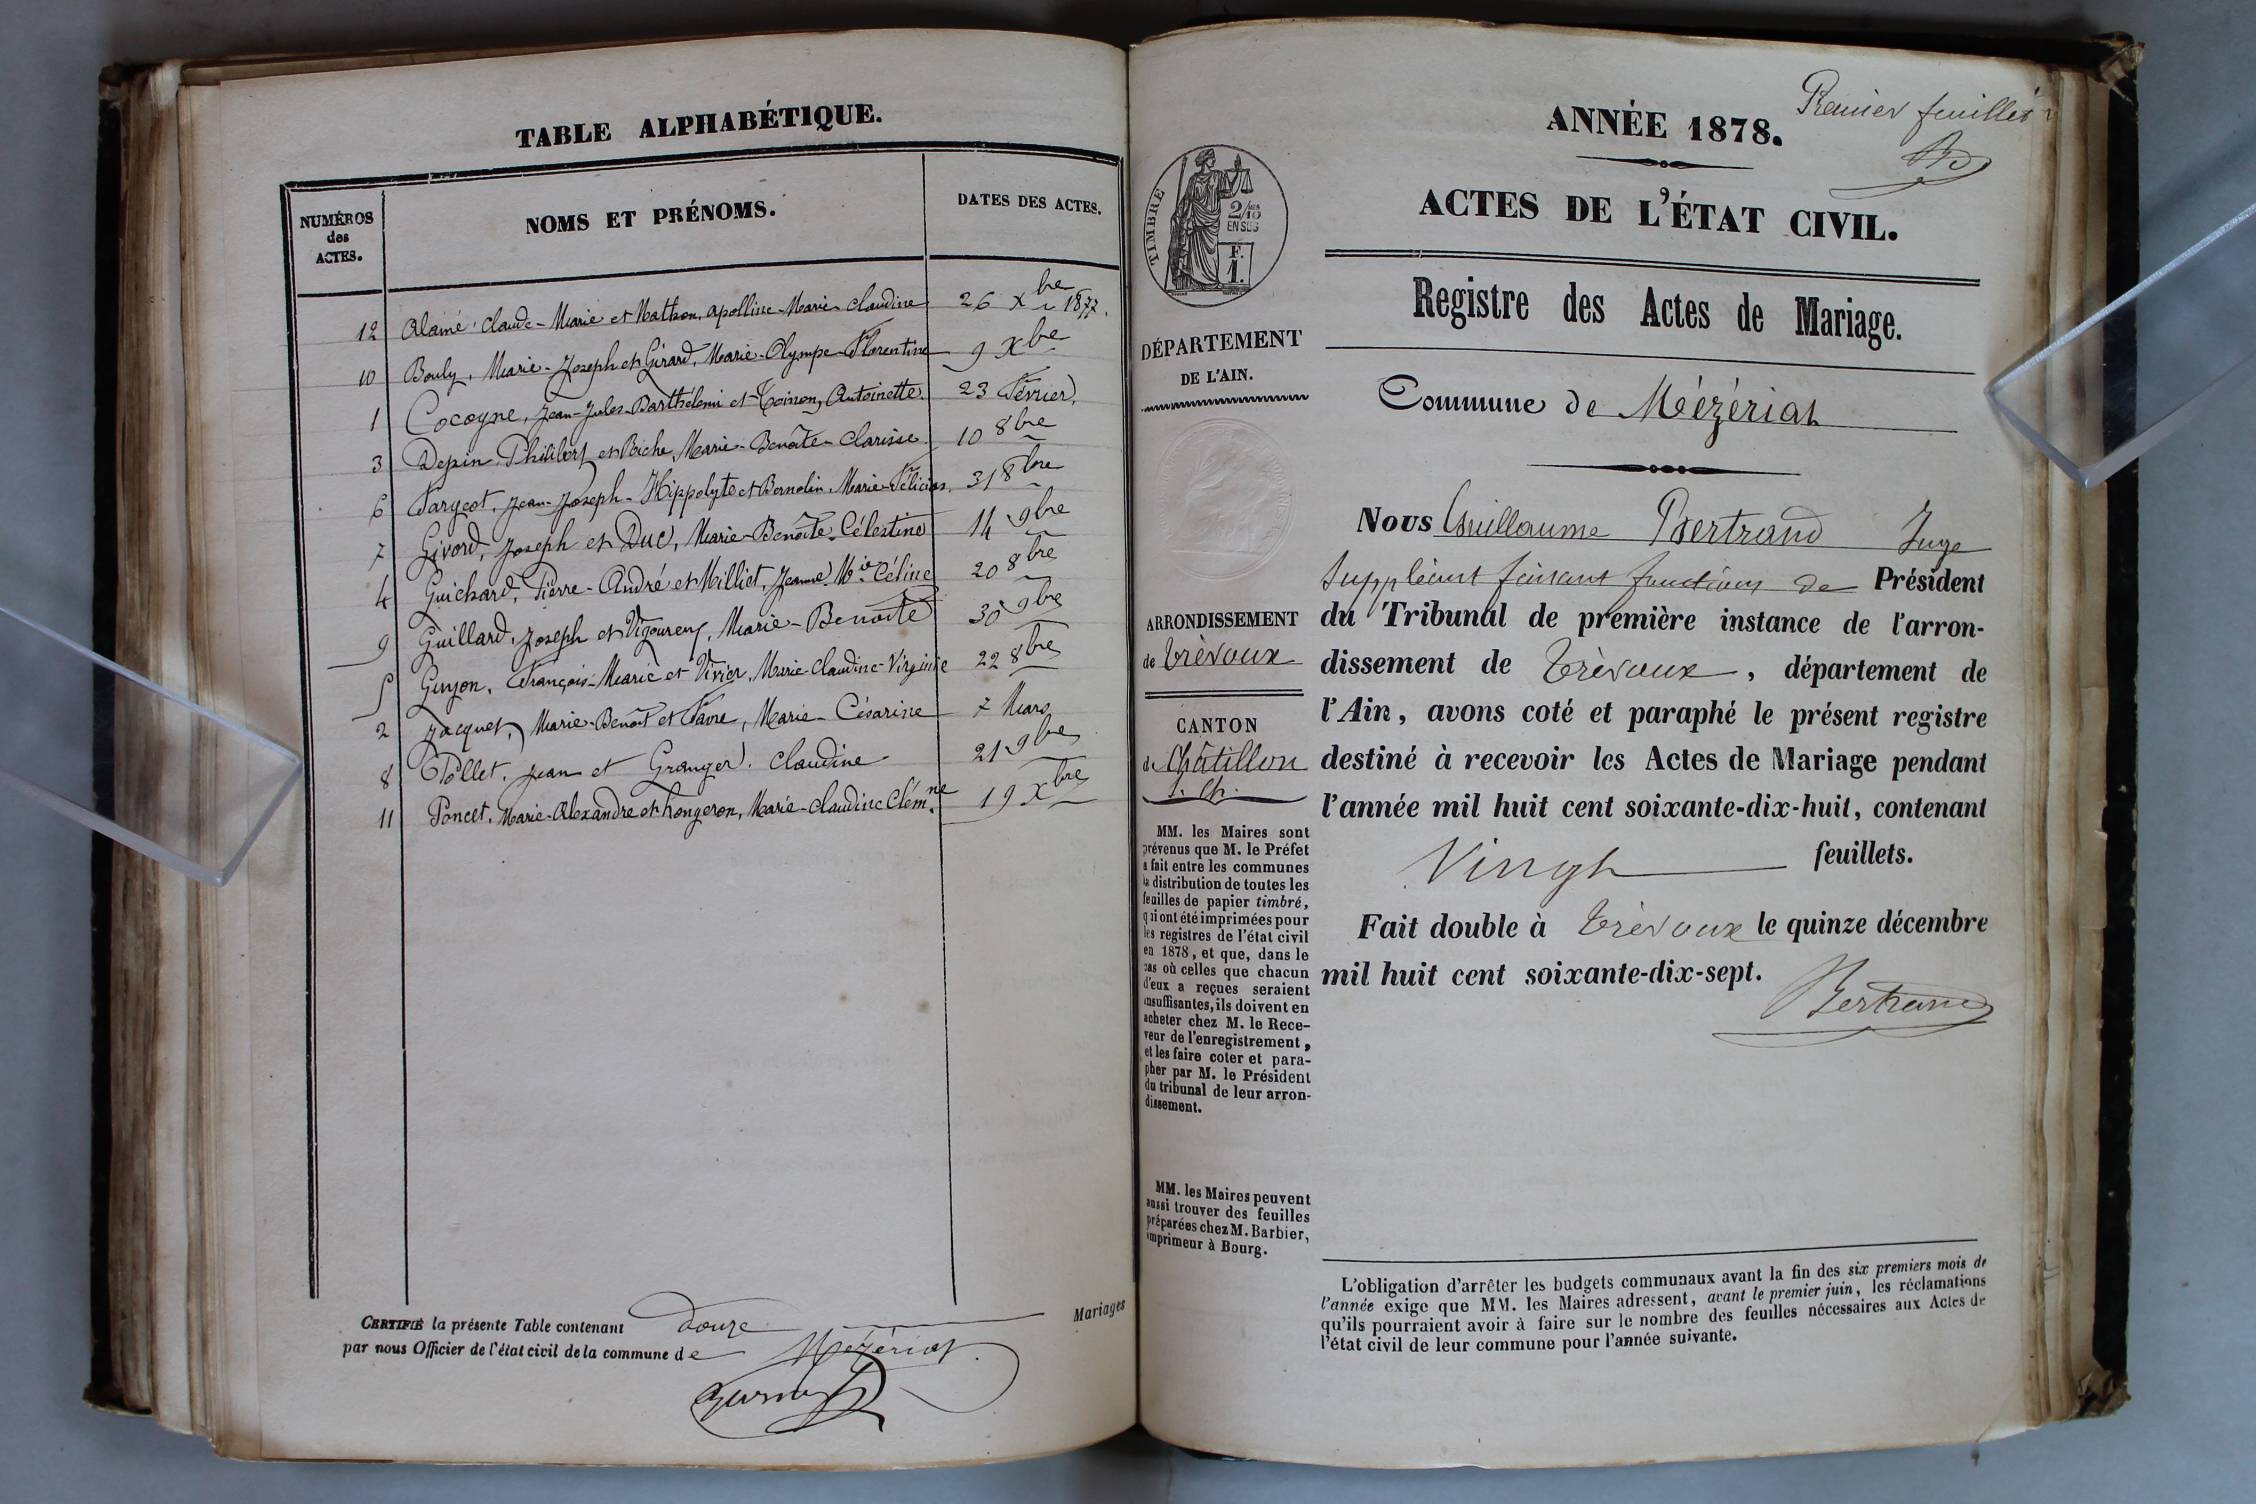 TABLE ALPHABÉTIQUE.
NUMÉROS
des
ACTES.
NOMS ET PRÉNOMS.
DATES DES ACTES.
12 Alamé, Claude-Marie et Mathon, Apolline-Marie-Claudine 26 Xbre 1877.
10 Bouly, Marie-Joseph et Girard, Marie-Olympe-Florentine 9 Xbre
1 Cocogne, Jean-Jules-Barthélemi et Toinon, Antoinette. 23 Février.
3 Depin, Philibert et Biche, Marie-Benoîte-Clarisse 10 8bre
6 Fargeot, Jean-Joseph-Hippolyte et Bernolin, Marie-Félicias. 31 8bre
7 Givord, Joseph et Duc, Marie-Benoîte-Célestine 14 9bre
4 Guichard, Pierre-André et Milliet, Jeanne Mie Céline 20 8bre
9 Guillard, Joseph et Vigoureux, Marie-Benoîte 30 9bre
5 Guyon, François-Marie et Vivier, Marie-Claudine-Virginie 22 8bre
2 Jacquet, Marie-Benoît et Favre, Marie-Césarine 7 Mars
8 Pollet, Jean et Granger, Claudine 21 9bre
11 Poncet, Marie-Alexandre et Longeron, Marie-Claudine Clémne 19 Xbre
CERTIFIÉ la présente Table contenant douze Mariages
par nous Officier de l'état civil de la commune de Mézériat.
Premier feuillet
ANNÉE 1878.
ACTES DE L'ÉTAT CIVIL.
Registre des Actes de Mariage.
Commune de Mézériat
TIMBRE
2/10
EN SUS
F.
1.
DÉPARTEMENT
DE L'AIN.
ARRONDISSEMENT
de Trévoux
CANTON
de Châtillon
s. Ch.
MM. les Maires sont
prévenus que M. le Préfet
a fait entre les communes
la distribution de toutes les
feuilles de papier timbré,
qui ont été imprimées pour
les registres de l'état civil
en 1878, et que, dans le
cas où celles que chacun
d'eux a reçues seraient
insuffisantes, ils doivent en
acheter chez M. le Rece-
veur de l'enregistrement,
et les faire coter et para-
pher par M. le Président
du tribunal de leur arron-
dissement.
MM. les Maires peuvent
aussi trouver des feuilles
préparées chez M. Barbier,
imprimeur à Bourg.
Nous Guillaume Bertrand Juge
Suppléant faisant fonctions de Président
du Tribunal de première instance de l'arron-
dissement de Trévoux, département de
l'Ain, avons coté et paraphé le présent registre
destiné à recevoir les Actes de Mariage pendant
l'année mil huit cent soixante-dix-huit, contenant
Vingt feuillets.
Fait double à Trévoux le quinze décembre
mil huit cent soixante-dix-sept.
Bertrand
L'obligation d'arrêter les budgets communaux avant la fin des six premiers mois de
l'année exige que MM. les Maires adressent, avant le premier juin, les réclamations
qu'ils pourraient avoir à faire sur le nombre des feuilles nécessaires aux Actes de
l'état civil de leur commune pour l'année suivante.